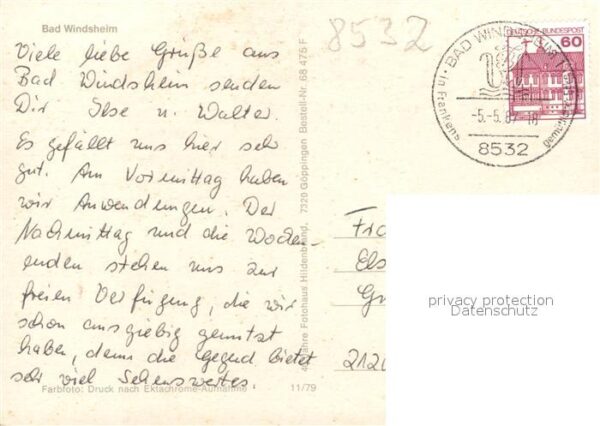 Bad Windsheim
8532
Viele liebe Grüße aus
Bad Windsheim senden
Dir Ilse u. Walter.
Es gefällt uns hier sehr
gut. Am Vormittag haben
wir Anwendungen. Der
Nachmittag und die Wochen-
enden stehen uns zur
freien Verfügung, die wir
schon ausgiebig genutzt
haben, denn die Gegend bietet
sehr viel Sehenswertes.
Farbfoto: Druck nach Ektachrome-Aufnahme 11/79
Jahre Fotohaus Hildenbrand, 7320 Göppingen Bestell-Nr. 68 475 F
DEUTSCHE BUNDESPOST
60
BAD WINDSHEIM
in Frankens
-5.-5.87
8532
Fra
Els
2120
privacy protection
Datenschutz